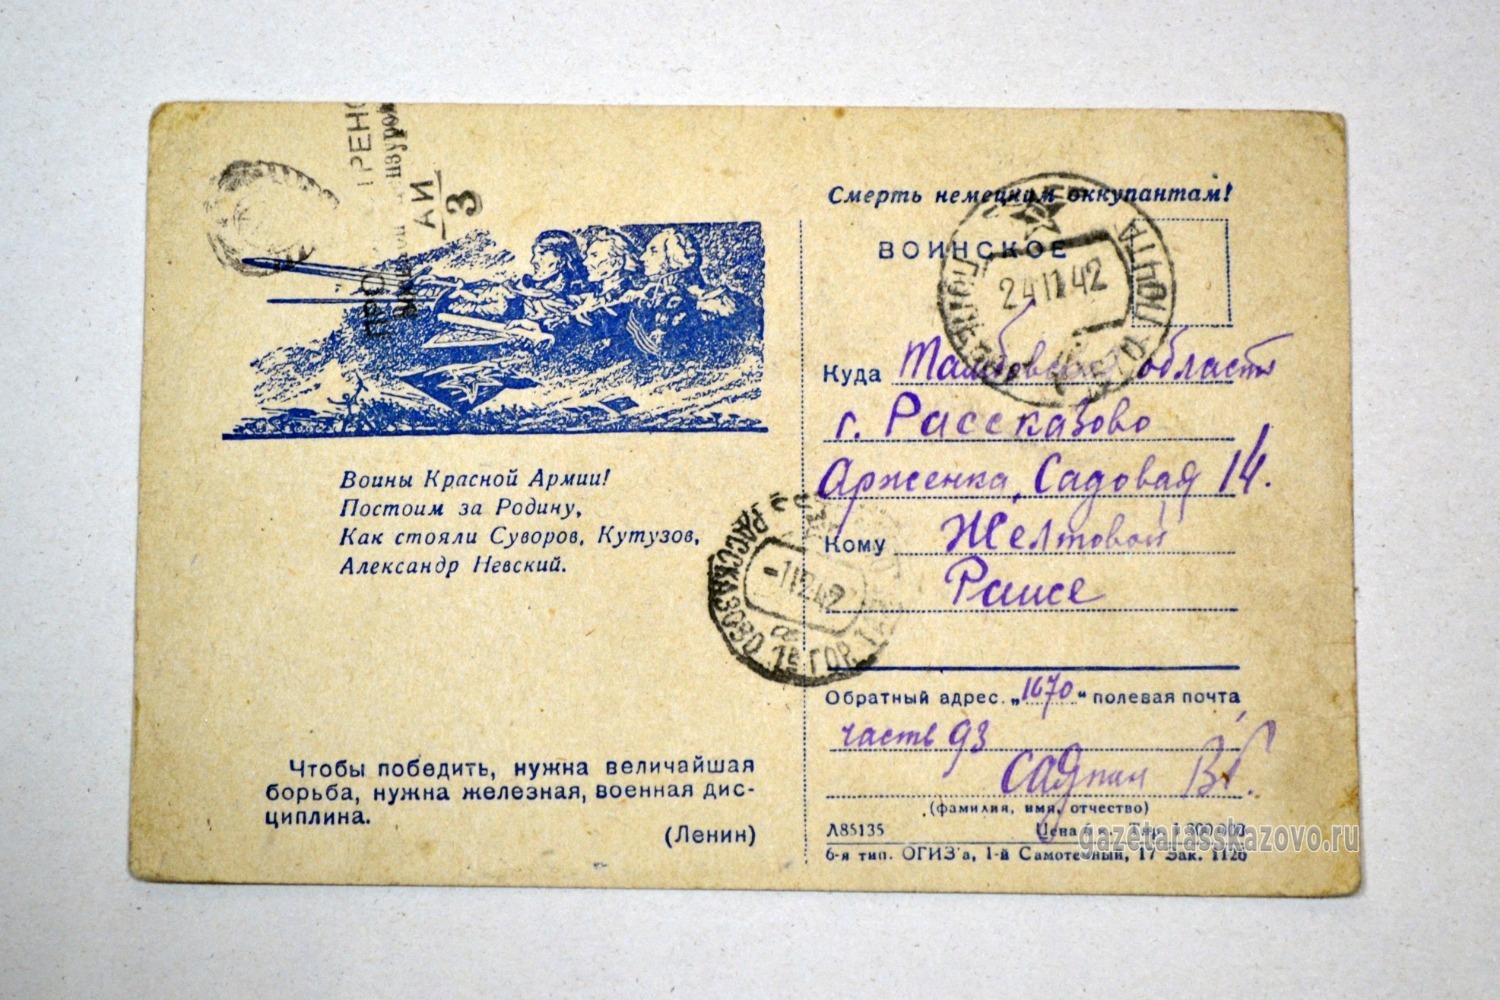 Смерть немецким оккупантам!
ВОИНСКОЕ
ПОЧТА
24 11 42
Куда Тамбовская область
г. Рассказово
Арженка, Садовая 14.
Кому Желтовой
Раисе
Обратный адрес „1670“ полевая почта
часть 93
(фамилия, имя, отчество)
Л85135 Цена
6-я тип. ОГИЗ'а, 1-й Самотечный, 17 Зак. 1126
gazetarasskazovo.ru
Воины Красной Армии!
Постоим за Родину,
Как стояли Суворов, Кутузов,
Александр Невский.
РАССКАЗОВО
-1 12 42
Чтобы победить, нужна величайшая
борьба, нужна железная, военная дис-
циплина.
(Ленин)
АИ
3